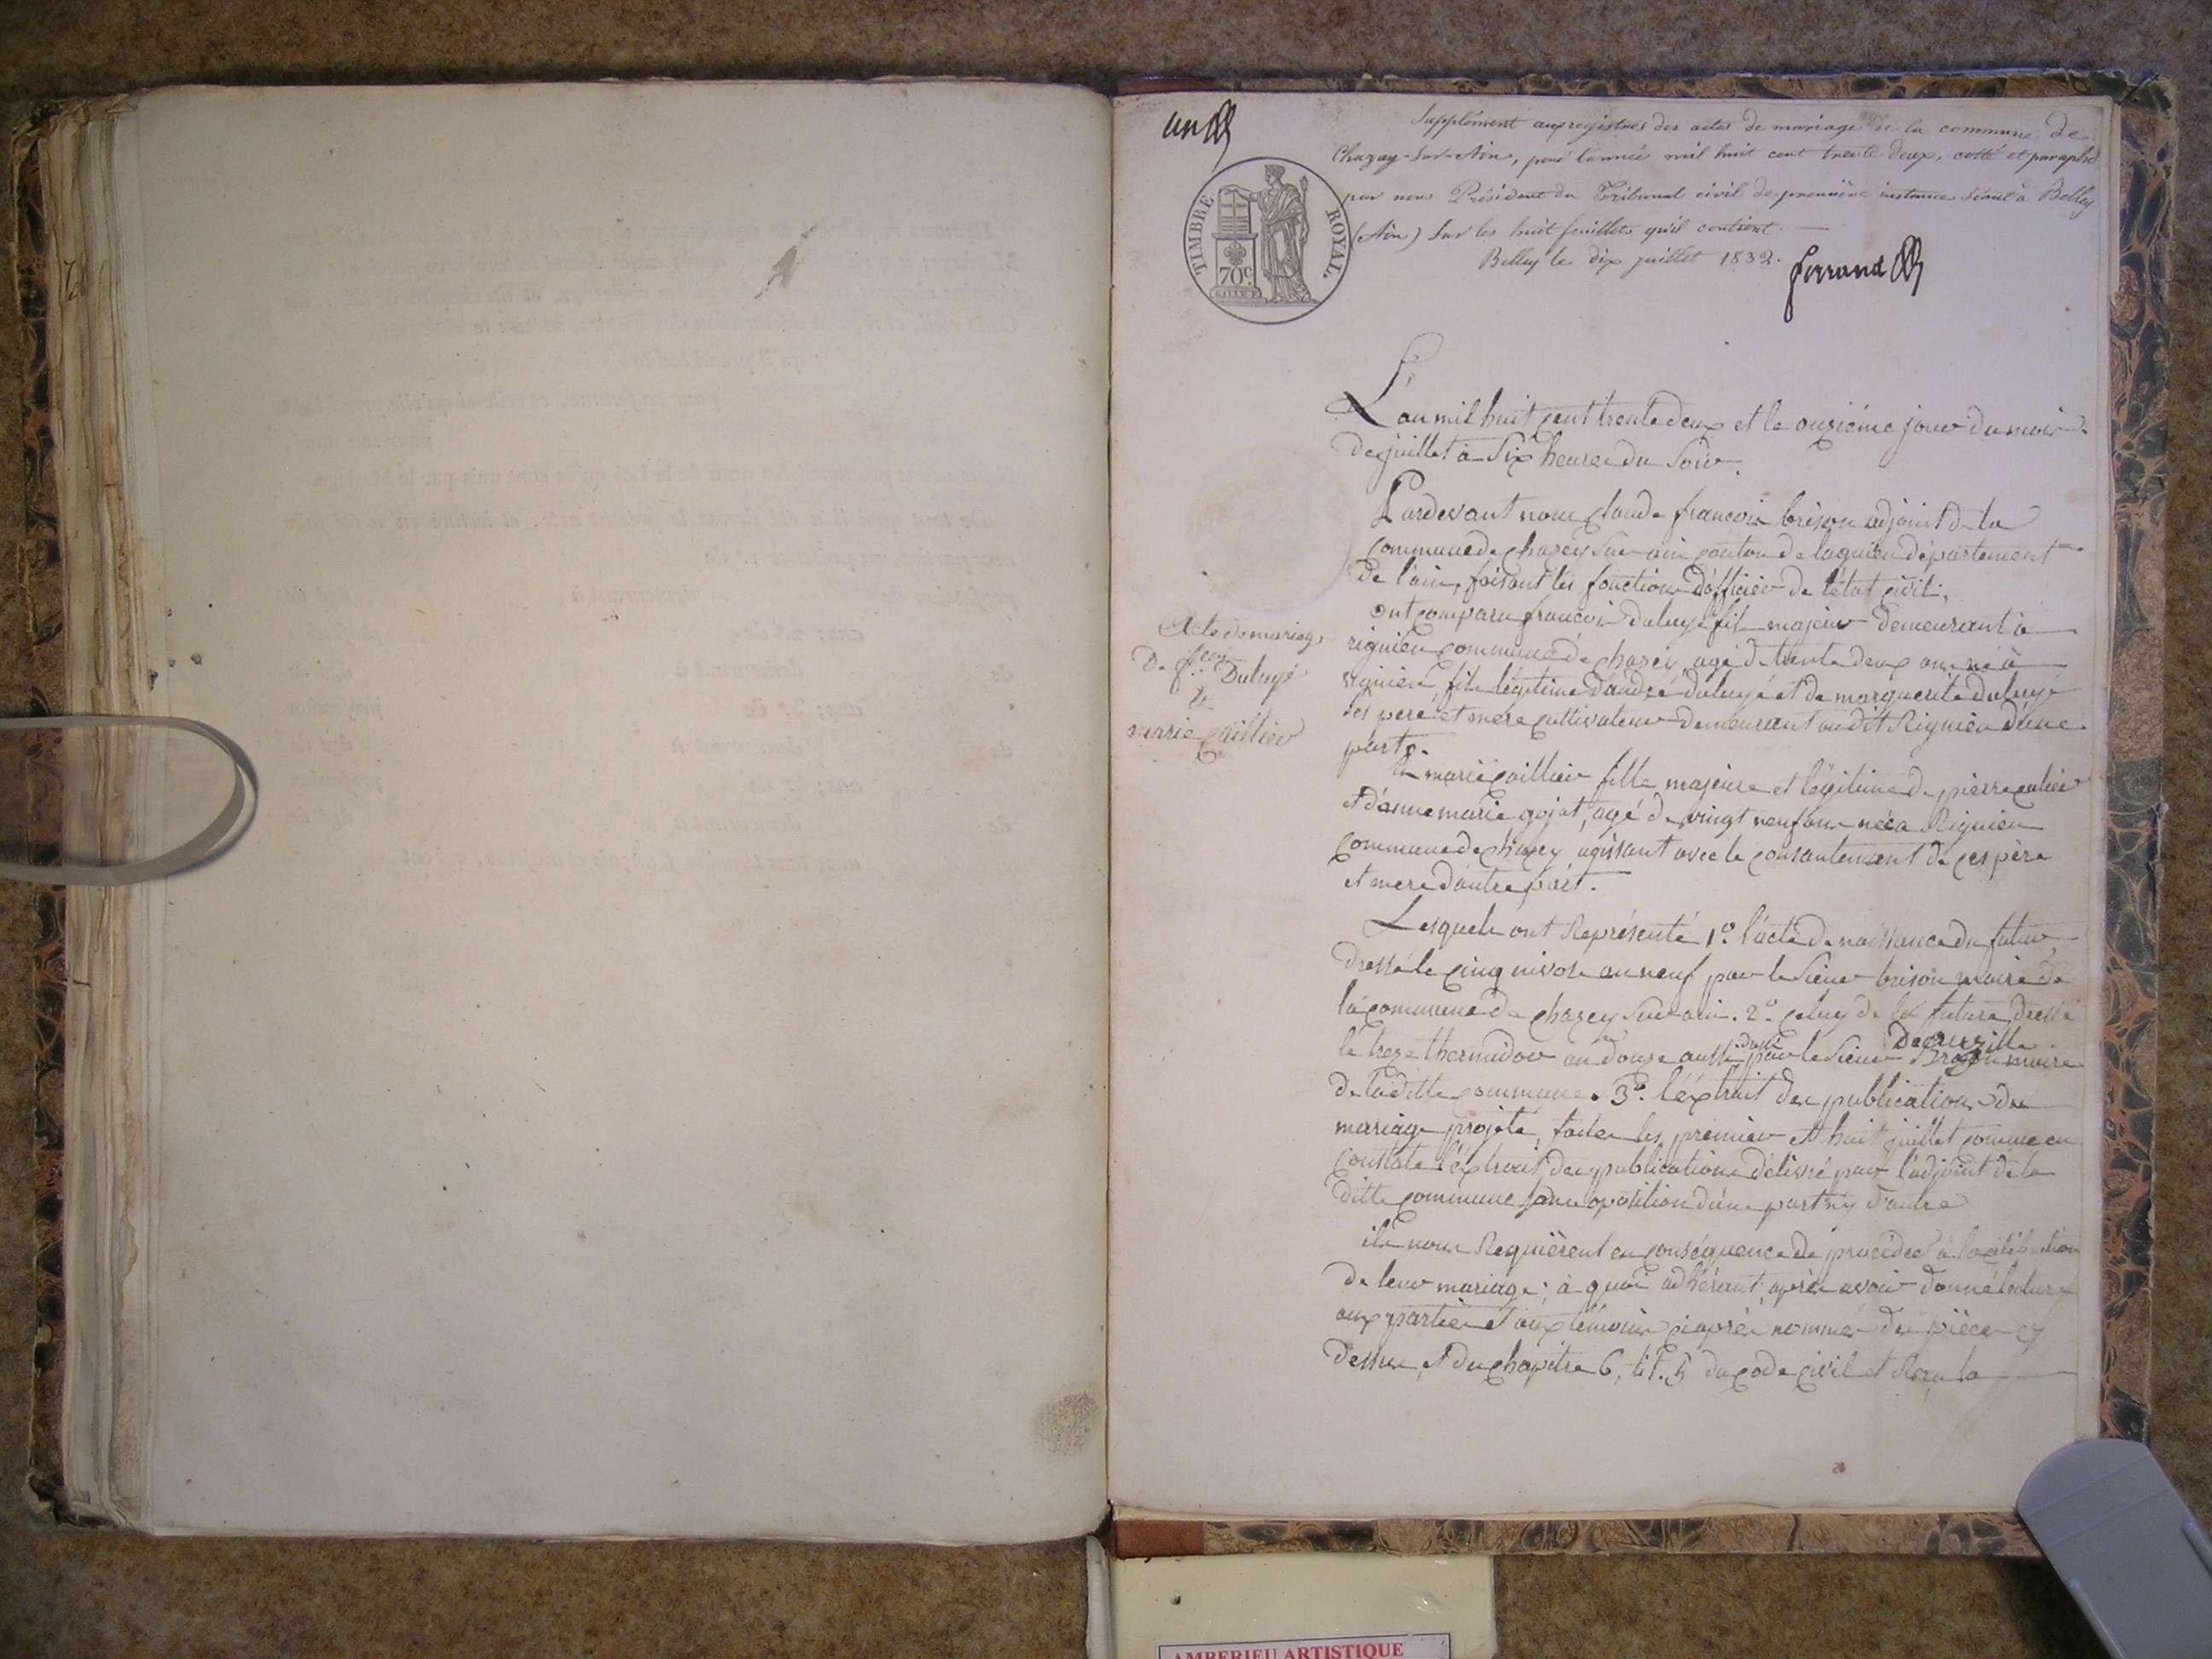 un
Supplément aux registres des actes de mariage de la commune de
Chazay-sur-Ain, pour l'année mil huit cent trente deux, cotté et paraphé
par nous Président du Tribunal civil de première instance séant à Belley
(Ain) sur les huit feuillets qu'il contient.
Belley le dix juillet 1832.
ferrand
TIMBRE ROYAL.
70c
L'an mil huit cent trente deux et le onzième jour du mois
de juillet à Six heures du Soir.
Pardevant nous Claude françois brison adjoint de la
commune de chazey sur ain canton de lagnieu département
de l'ain, faisant les fonctions d'officier de l'état civil,
ont comparu françois duluye fils majeur demeurant à
rignieu commune de chazey, agé de trente deux ans né à
rignieu, fils légitime d'andré duluyé et de marguerite duluyé
ses pere et mere cultivateur demeurant au dit Rignieu d'une
part.
Acte de mariage
De fcois Duluyé
et
marie Caillier
Et marie caillier fille majeure et légitime de pierre calier
et d'anne marie gojat, agé de vingt neuf ans née a Rignieu
commune de chazey, agissant avec le consantement de ces père
et mere d'autre part.
Lesquels ont Représenté 1º. l'acte de naissance du futur,
dressé le cinq nivose an neuf par le Sieur brison maire de
la commune de chazey sur ain. 2º. celuy de la future dressé
le treze thermidor an douze aussi par le Sieur maire
de laditte commune. 3º. l'éxtrait des publications du
mariage projeté, faites les premier et huit juillet comme en
constate l'éxtrait des publications délivré par l'adjoint de la
ditte commune sans oposition d'une part ny d'autre
ils nous Requièrent en conséquence de procéder à la célébration
de leur mariage; à quoi adhérant, après avoir donné lecture
aux parties et aux témoins ci après nommés des pièces cy
dessus, et du chapitre 6, tit. 5 du code civil et Reçu la
AMBERIEU ARTISTIQUE